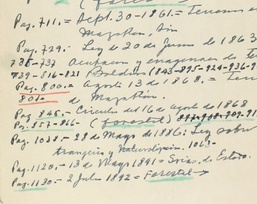 Pag. 711.= Sept. 30-1861.= Terrenos en
Mazatlan, Sin
Pag. 729.- Ley de 20 de Junio de 1863
736-737
739-516-821 (Boletin) (843-895-924-936-9
Pag. 800.= Agosto 13 de 1868.= Terr
801.- de Mazatlan.
Pag. 845.- Circular del 16 de Agosto de 1868
Pag. 857-866- (forestal)
Pag. 1038.- 28 de Mayo de 1886: Ley sobre
Extranjeria y Naturalizacion. 1063-
Pag. 1120.- 13 de Mayo 1891 = Srias. de Estado.
Pag. 1130.- 2 Julio 1892 = Forestal →